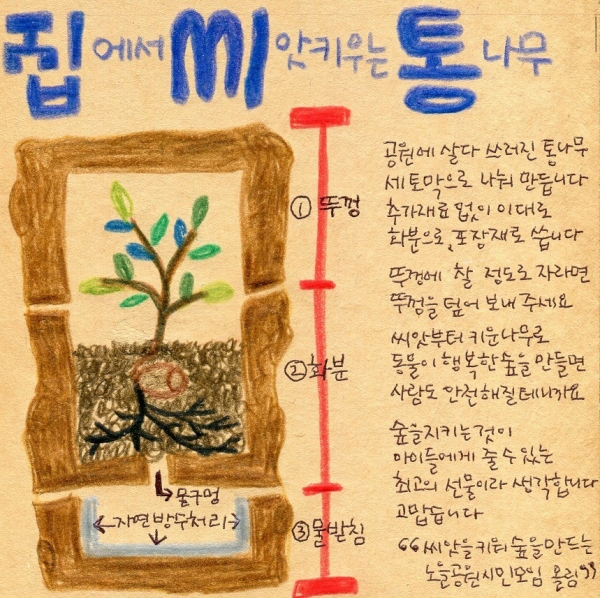 집에서 씨앗키우는 통나무
① 뚜껑
② 화분
물구멍
자연방수처리
③ 물받침
공원에 살다 쓰러진 통나무
세토막으로 나눠 만듭니다
추가재료 없이 이대로
화분으로, 포장재로 씁니다
뚜껑에 찰 정도로 자라면
뚜껑을 덮어 보내 주세요
씨앗부터 키운나무로
동물이 행복한 숲을 만들면
사람도 안전해질테니까요
숲을지키는것이
아이들에게 줄 수 있는
최고의 선물이라 생각합니다
고맙습니다
“씨앗을키워 숲을만드는
노을공원시민모임 올림”